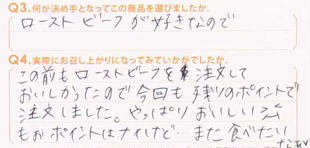 Q3.何が決め手となってこの商品を選びましたか。
ローストビーフが好きなので
Q4.実際にお召し上がりになってみていかがでしたか。
この前もローストビーフを注文して
おいしかったので今回も残りのポイントで
注文しました。やっぱりおいしい
もおポイントはナイけど…また食べたい
なあ